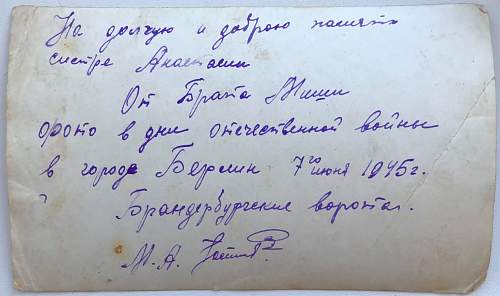 На долгую и доброю память
сестре Анастасии
От Брата Миши
фото в дни отечественной войны
в городе Берлин 7го июня 1945г.
Брандербургские ворота.
М. А.